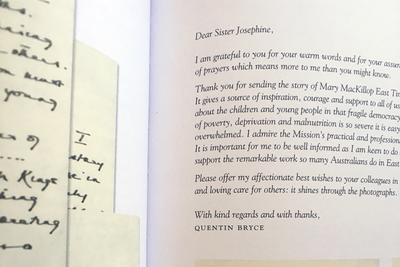 ising
others.
must
young
of
Kings
ing
orating
I
Dear Sister Josephine,
I am grateful to you for your warm words and for your
of prayers which means more to me than you might know.
Thank you for sending the story of Mary MacKillop East
It gives a source of inspiration, courage and support to all of
about the children and young people in that fragile democracy
of poverty, deprivation and malnutrition is so severe it is easy
overwhelmed. I admire the Mission's practical and
It is important for me to be well informed as I am keen to do
support the remarkable work so many Australians do in East
Please offer my affectionate best wishes to your colleagues in
and loving care for others: it shines through the photographs.
With kind regards and with thanks,
QUENTIN BRYCE